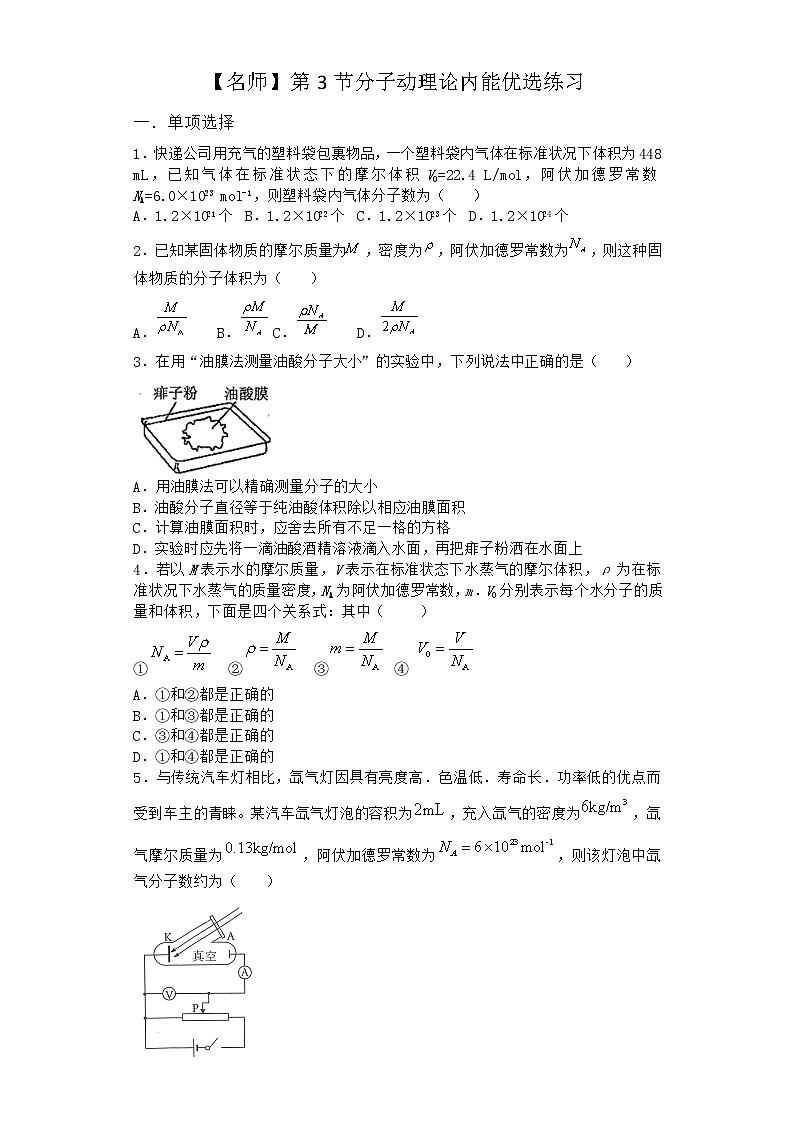 【名师】第3节分子动理论内能优选练习
一．单项选择
1．快递公司用充气的塑料袋包裹物品，一个塑料袋内气体在标准状况下体积为448
mL，已知气体在标准状态下的摩尔体积 V₀=22.4 L/mol，阿伏加德罗常数
Nₐ=6.0×10²³ mol⁻¹，则塑料袋内气体分子数为（　　）
A．1.2×10²¹个 B．1.2×10²²个 C．1.2×10²³个 D．1.2×10²⁴个
2．已知某固体物质的摩尔质量为M，密度为ρ，阿伏加德罗常数为N_A，则这种固
体物质的分子体积为（　　）
A．M/ρN_A B．ρM/N_A C．ρN_A/M D．M/2ρN_A
3．在用“油膜法测量油酸分子大小”的实验中，下列说法中正确的是（　　）
痱子粉 油酸膜
A．用油膜法可以精确测量分子的大小
B．油酸分子直径等于纯油酸体积除以相应油膜面积
C．计算油膜面积时，应舍去所有不足一格的方格
D．实验时应先将一滴油酸酒精溶液滴入水面，再把痱子粉洒在水面上
4．若以M表示水的摩尔质量，V表示在标准状态下水蒸气的摩尔体积，ρ为在标
准状况下水蒸气的质量密度，N_A为阿伏加德罗常数，m．V₀分别表示每个水分子的质
量和体积，下面是四个关系式：其中（　　）
①N_A=Vρ/m ②ρ=M/N_A ③m=M/N_A ④V₀=V/N_A
A．①和②都是正确的
B．①和③都是正确的
C．③和④都是正确的
D．①和④都是正确的
5．与传统汽车灯相比，氙气灯因具有亮度高．色温低．寿命长．功率低的优点而
受到车主的青睐。某汽车氙气灯泡的容积为2mL，充入氙气的密度为6kg/m³，氙
气摩尔质量为0.13kg/mol，阿伏加德罗常数为N_A=6×10²³mol⁻¹，则该灯泡中氙
气分子数约为（　　）
K A
真空
A
V
P